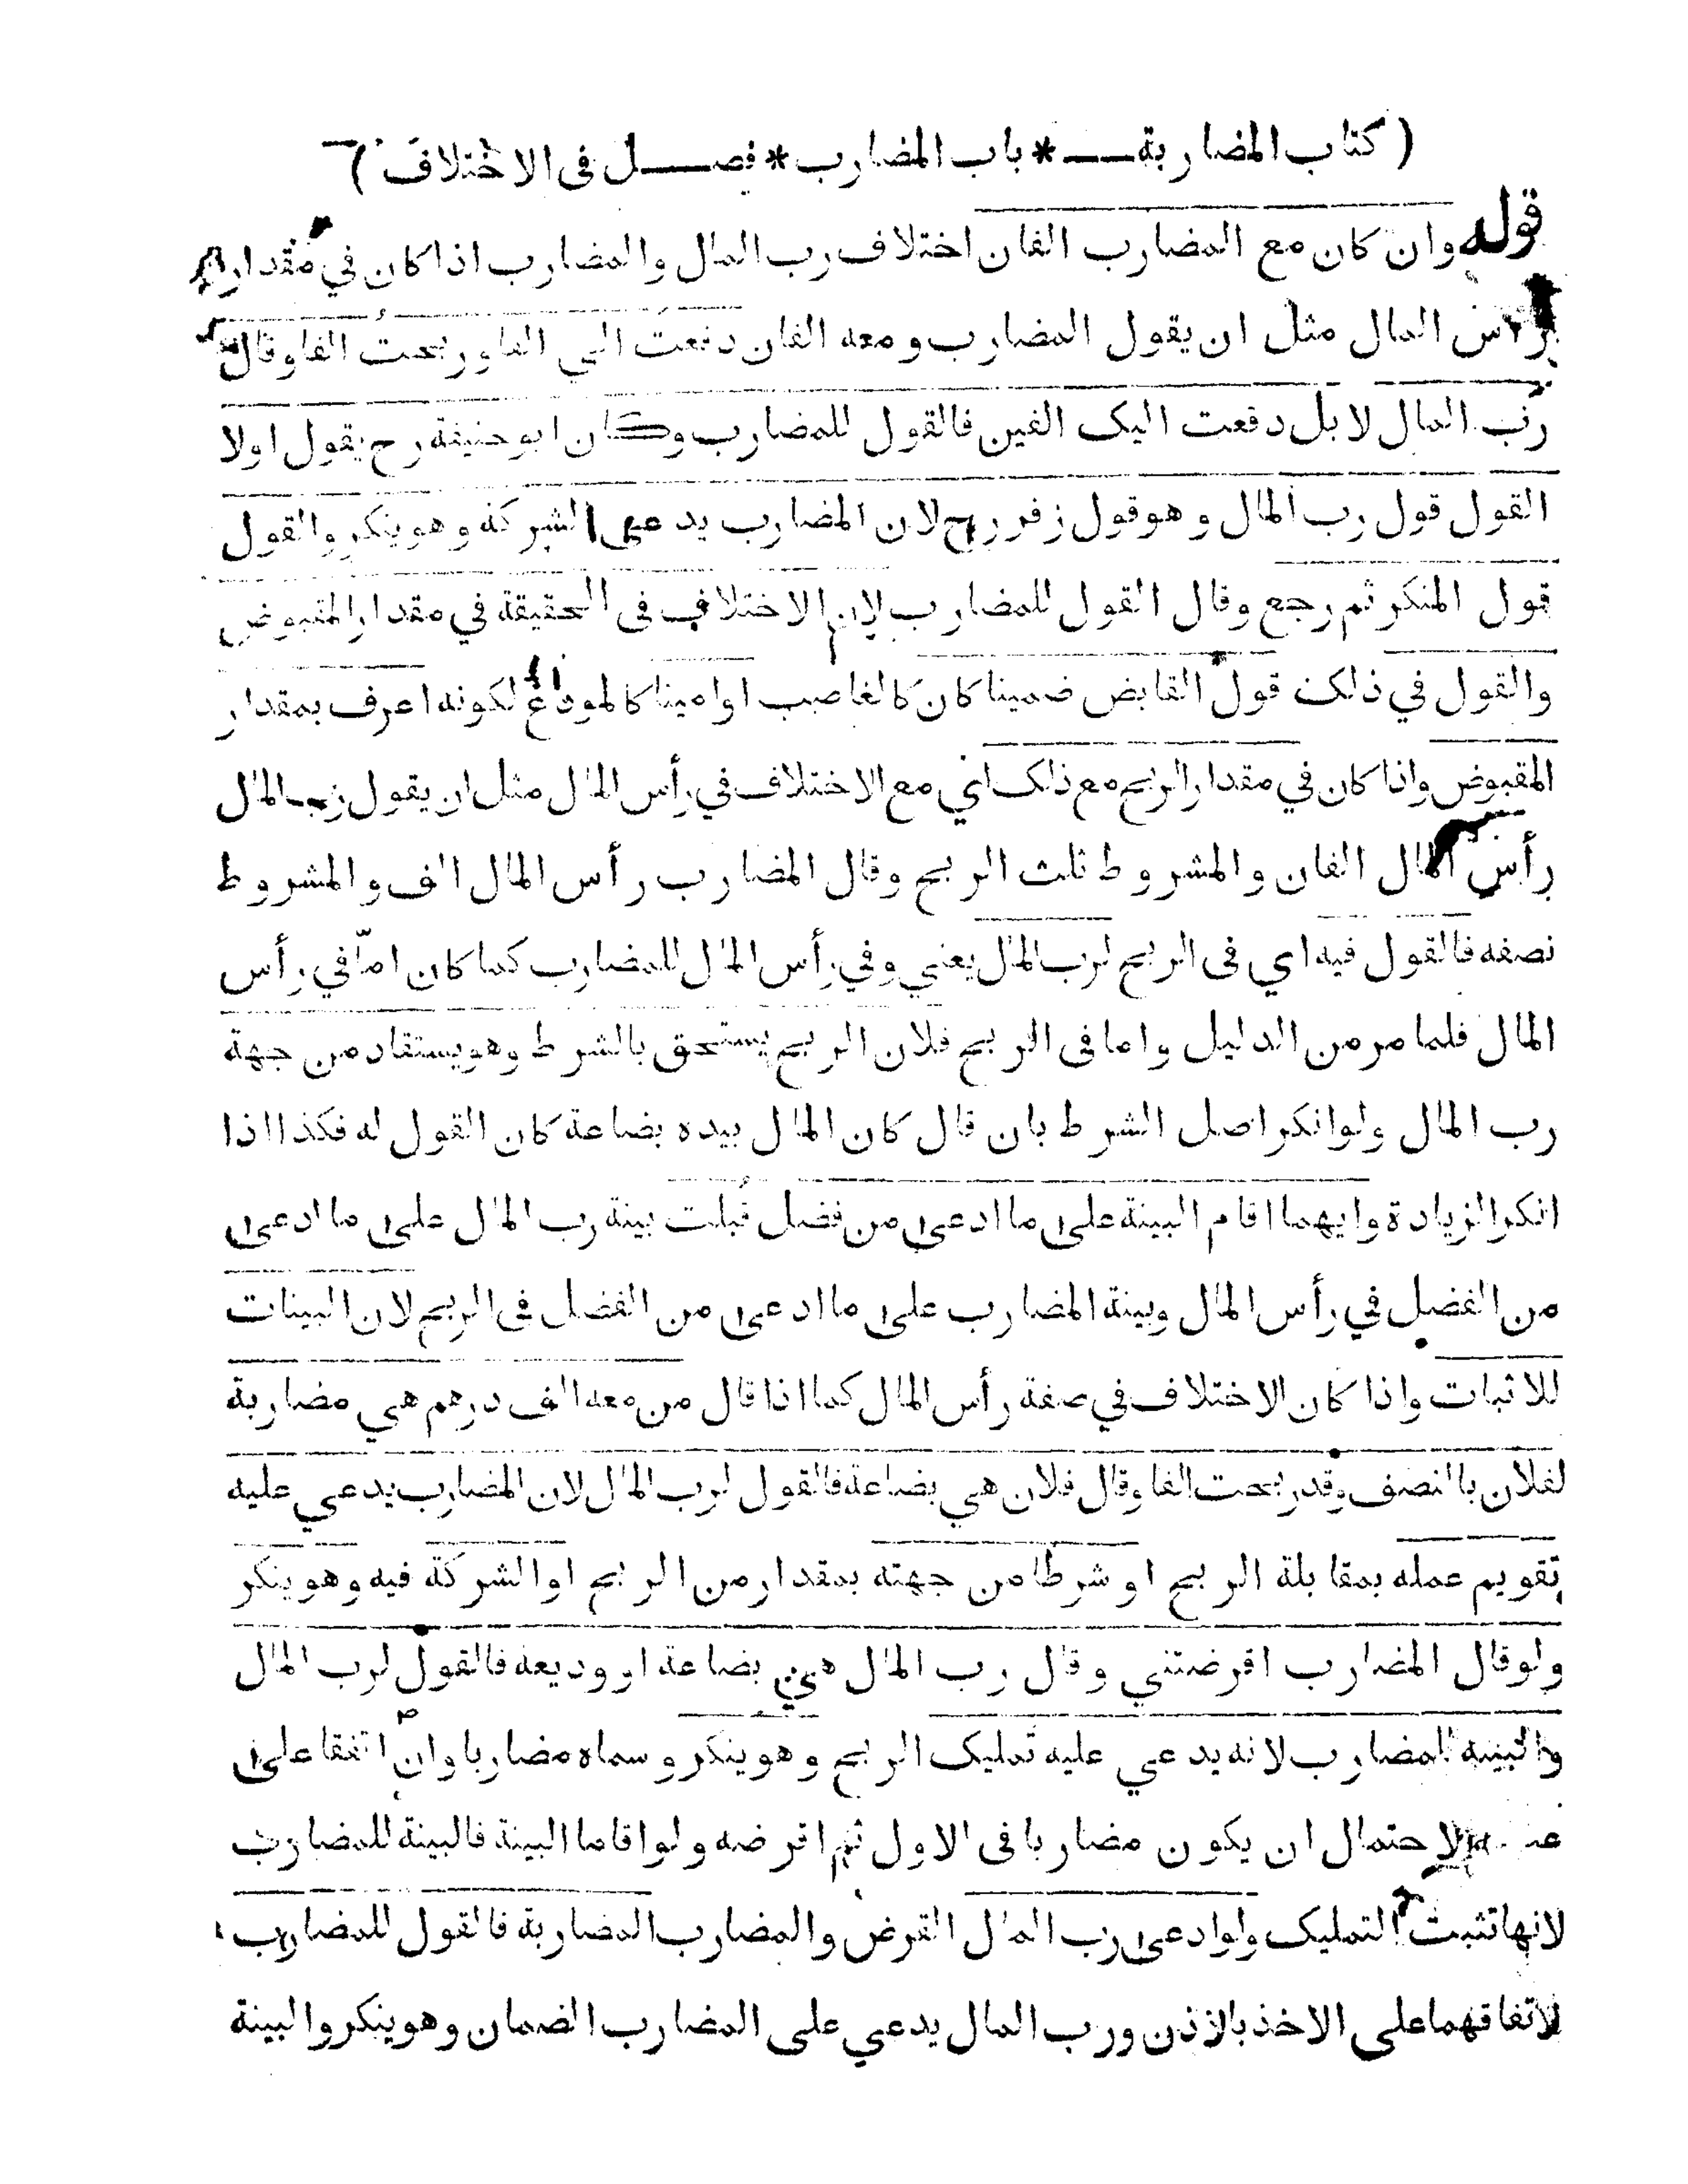 ( كتاب المضاربة * باب المضارب * فصل فى الاختلاف )
قوله وان كان مع المضارب الفان اختلاف رب المال والمضارب اذا كان في مقدار
رأس المال مثل ان يقول المضارب ومعه الفان دفعت الي الفا وربحت الفا وقال
رب المال لا بل دفعت اليك الفين فالقول للمضارب وكان ابو حنيفة رح يقول اولا
القول قول رب المال وهو قول زفر رح لان المضارب يدعى الشركة وهو ينكر والقول
قول المنكر ثم رجع وقال القول للمضارب لان الاختلاف فى الحقيقة في مقدار المقبوض
والقول في ذلك قول القابض ضمينا كان كالغاصب او امينا كالمودع لكونه اعرف بمقدار
المقبوض واذا كان في مقدار الربح مع ذلك اي مع الاختلاف في رأس المال مثل ان يقول رب المال
رأس المال الفان والمشروط ثلث الربح وقال المضارب رأس المال الف والمشروط
نصفه فالقول فيه اي فى الربح لرب المال يعني وفي رأس المال للمضارب كما كان امّا في رأس
المال فلما مر من الدليل واما فى الربح فلان الربح يستحق بالشرط وهو يستفاد من جهة
رب المال ولو انكر اصل الشرط بان قال كان المال بيده بضاعة كان القول له فكذا اذا
انكر الزيادة وايهما اقام البينة على ما ادعى من فضل قُبلت بينة رب المال على ما ادعى
من الفضل في رأس المال وبينة المضارب على ما ادعى من الفضل فى الربح لان البينات
للاثبات واذا كان الاختلاف في صفة رأس المال كما اذا قال من معه الف درهم هي مضاربة
لفلان بالنصف وقد ربحت الفا وقال فلان هي بضاعة فالقول لرب المال لان المضارب يدعي عليه
تقويم عمله بمقابلة الربح او شرطا من جهته بمقدار من الربح او الشركة فيه وهو ينكر
ولو قال المضارب اقرضتني وقال رب المال هي بضاعة او وديعة فالقول لرب المال
والبينة للمضارب لانه يدعي عليه تمليك الربح وهو ينكر وسماه مضاربا وان اتفقا على
لاحتمال ان يكون مضاربا فى الاول ثم اقرضه ولو اقاما البينة فالبينة للمضارب
لانها تثبت التمليك ولو ادعى رب المال القرض والمضارب المضاربة فالقول للمضارب
لاتفاقهما على الاخذ بالاذن ورب المال يدعي على المضارب الضمان وهو ينكر والبينة